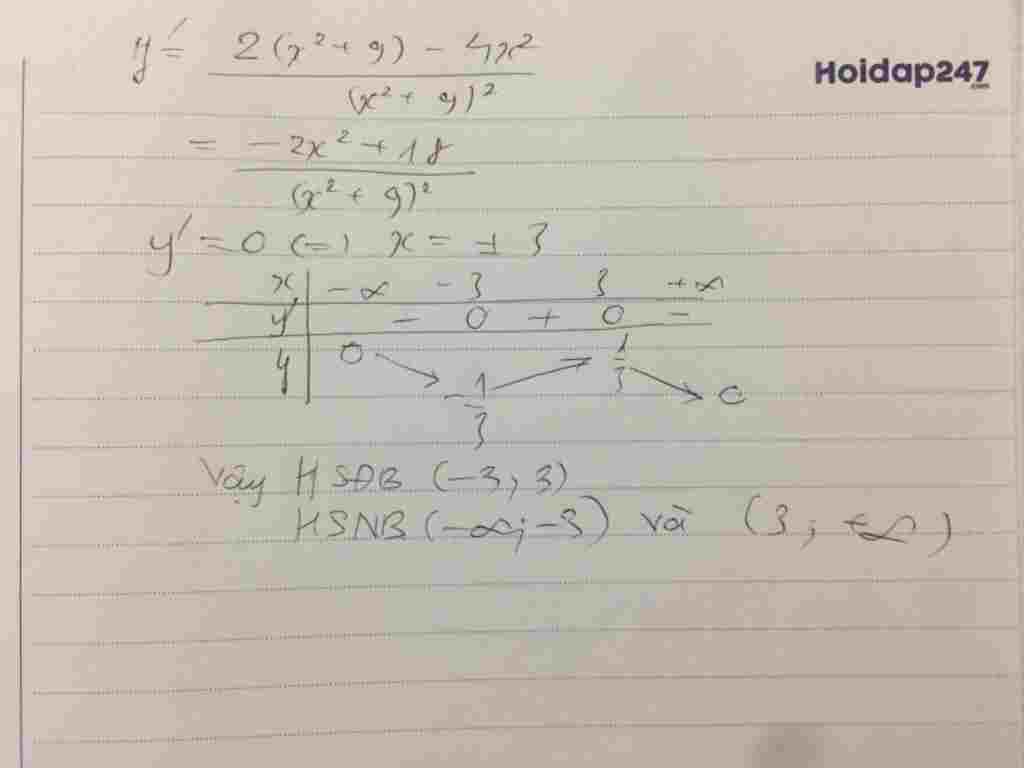 y' = 2(x² + 9) - 4x² / (x² + 9)²
Hoidap247
.com
= -2x² + 18 / (x² + 9)²
y' = 0 (=) x = ± 3
x -∞ -3 3 +∞
y' - 0 + 0 -
y 0 -1/3 1/3 0
Vậy HSĐB (-3; 3)
HSNB (-∞; -3) và (3; +∞)